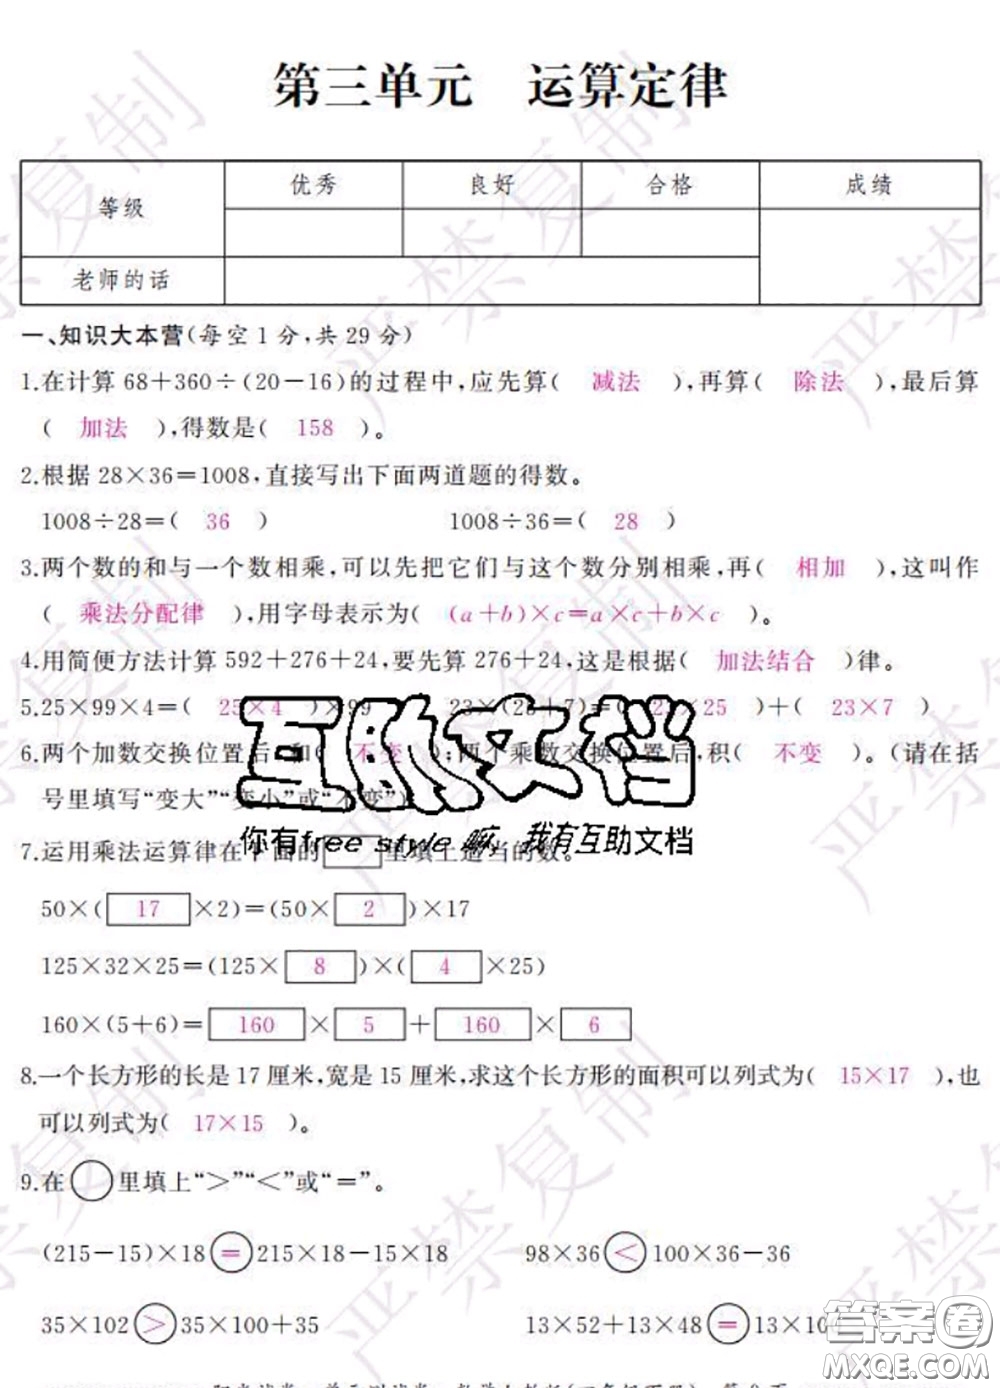 第三单元 运算定律
等级 优秀 良好 合格 成绩
老师的话
一、知识大本营(每空1分,共29分)
1.在计算68+360÷(20-16)的过程中,应先算( 减法 ),再算( 除法 ),最后算
( 加法 ),得数是( 158 )。
2.根据28×36=1008,直接写出下面两道题的得数。
1008÷28=( 36 ) 1008÷36=( 28 )
3.两个数的和与一个数相乘,可以先把它们与这个数分别相乘,再( 相加 ),这叫作
( 乘法分配律 ),用字母表示为( (a+b)×c=a×c+b×c )。
4.用简便方法计算592+276+24,要先算276+24,这是根据( 加法结合 )律。
5.25×99×4=( 25×4 )×99 23×(25+7)=( 23×25 )+( 23×7 )
6.两个加数交换位置后,和( 不变 );两个乘数交换位置后,积( 不变 )。(请在括
号里填写“变大”“变小”或“不变”)
互助文档
你有free style嘛,我有互助文档
7.运用乘法运算律在下面的 里填上适当的数。
50×( 17 ×2)=(50× 2 )×17
125×32×25=(125× 8 )×( 4 ×25)
160×(5+6)= 160 × 5 + 160 × 6
8.一个长方形的长是17厘米,宽是15厘米,求这个长方形的面积可以列式为( 15×17 ),也
可以列式为( 17×15 )。
9.在 里填上“>”“<”或“=”。
(215-15)×18 = 215×18-15×18 98×36 < 100×36-36
35×102 > 35×100+35 13×52+13×48 = 13×10
答案圈
MXQE.COM
严禁复制
严禁复制
严禁复制
严禁复制